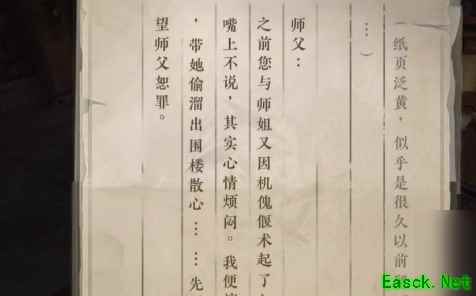 纸页泛黄，似乎是很久以前
…）
师父：
之前您与师姐又因机傀偃术起了
嘴上不说，其实心情烦闷。我便
，带她偷溜出围楼散心……先
望师父恕罪。
Easck.Net